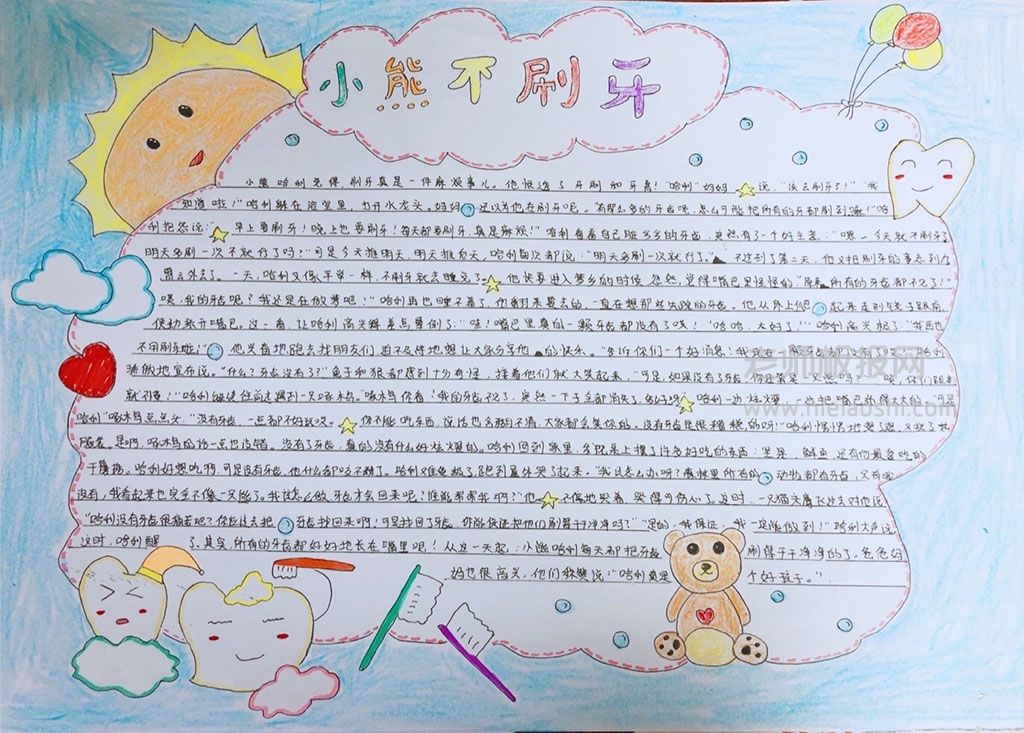 小熊不刷牙
小熊哈利觉得，刷牙真是一件麻烦事儿。他恨透了牙刷和牙膏！"哈利"妈妈说，"该去刷牙了！""我
知道啦！"哈利躲在浴室里，打开水龙头。妈妈还以为他在刷牙呢。"有那么多的牙齿呢，怎么可能把所有的牙都刷到嘛！"哈
利抱怨说："早上要刷牙！晚上也要刷牙！每天都要刷牙，真是麻烦！"哈利看着自己脏兮兮的牙齿，突然有了一个好主意："嗯，今天就不刷牙了
明天多刷一次不就行了吗？"可是今天推明天，明天推后天，哈利每次都说："明天多刷一次就行了。"不过到了第二天，他又把刷牙的事忘到九
霄云外去了。一天，哈利又像平常一样，不刷牙就去睡觉了。他快要进入梦乡的时候，忽然，觉得嘴巴里怪怪的，"所有的牙齿都不见了！"
"嗯，我的牙齿呢？我还是在做梦吧！"哈利再也睡不着了，他翻来覆去的，一直在想那些的牙齿。他从床上爬起来走到镜子跟前，
使劲张开嘴巴，这一看，让哈利高兴得差点晕倒了："哇！嘴巴里真的一颗牙齿都没有了哎！""哈哈，太好了！"哈利高兴极了，"我再也
不用刷牙啦！"他兴奋地跑去找朋友们，迫不及待地想让大家分享他的快乐。"告诉你们一个好消息！我现在一颗牙齿都没有了哎！"哈利
骄傲地宣布说。"什么？牙齿没有了？"兔子和狼都感到十分有怪，接着他们就大笑起来，"可是，如果没有了牙齿，你还算是一只熊吗？"
就"哈利继续往前走遇到一只啄木鸟。"啄木鸟你看！我的牙齿不见了，突然一下子全都消失了，"哈利一边一边把嘴巴张得大大的。"可是
哈利"啄木鸟点点头，"没有牙齿，一点都不好玩哎。你不能吃东西，说话也会漏口水，大家都会笑你的。没有牙齿是很糟糕的呀！"哈利愣愣地想了想，又挠了挠
脑袋。是啊，啄木鸟的话一点也没错。没有了牙齿，真的没有什么好炫耀的。哈利回到家里，发现桌上摆了许多好吃的东西：坚果，鲜鱼，还有他最爱吃的
干腰梅。哈利好想吃啊，可是没有牙齿，他什么都咬不动了。哈利难过极了，跑到屋外哭了起来。"我该怎么办呀？森林里所有的动物都有牙齿，只有我
没有，我看起来也完全不像一只熊了。我该怎么做牙齿才会回来呢？谁能帮帮我啊？"他不停地哭着，哭得可伤心了。这时，一只猫头鹰飞过来对他说
"哈利没有牙齿很痛苦吧？你应该去把牙齿找回来啊！可是找回了牙齿，你能保证把他们刷得干干净净吗？""是的，我保证，我一定能做到！"哈利大声说
这时，哈利醒了，其实，所有的牙齿都好好地长在嘴里呢！从这一天起，小熊哈利每天都把牙齿刷得干干净净的了，爸爸妈
妈也很高兴，他们称赞说："哈利真是个好孩子。"
老师板报网
www.mielaoshi.com